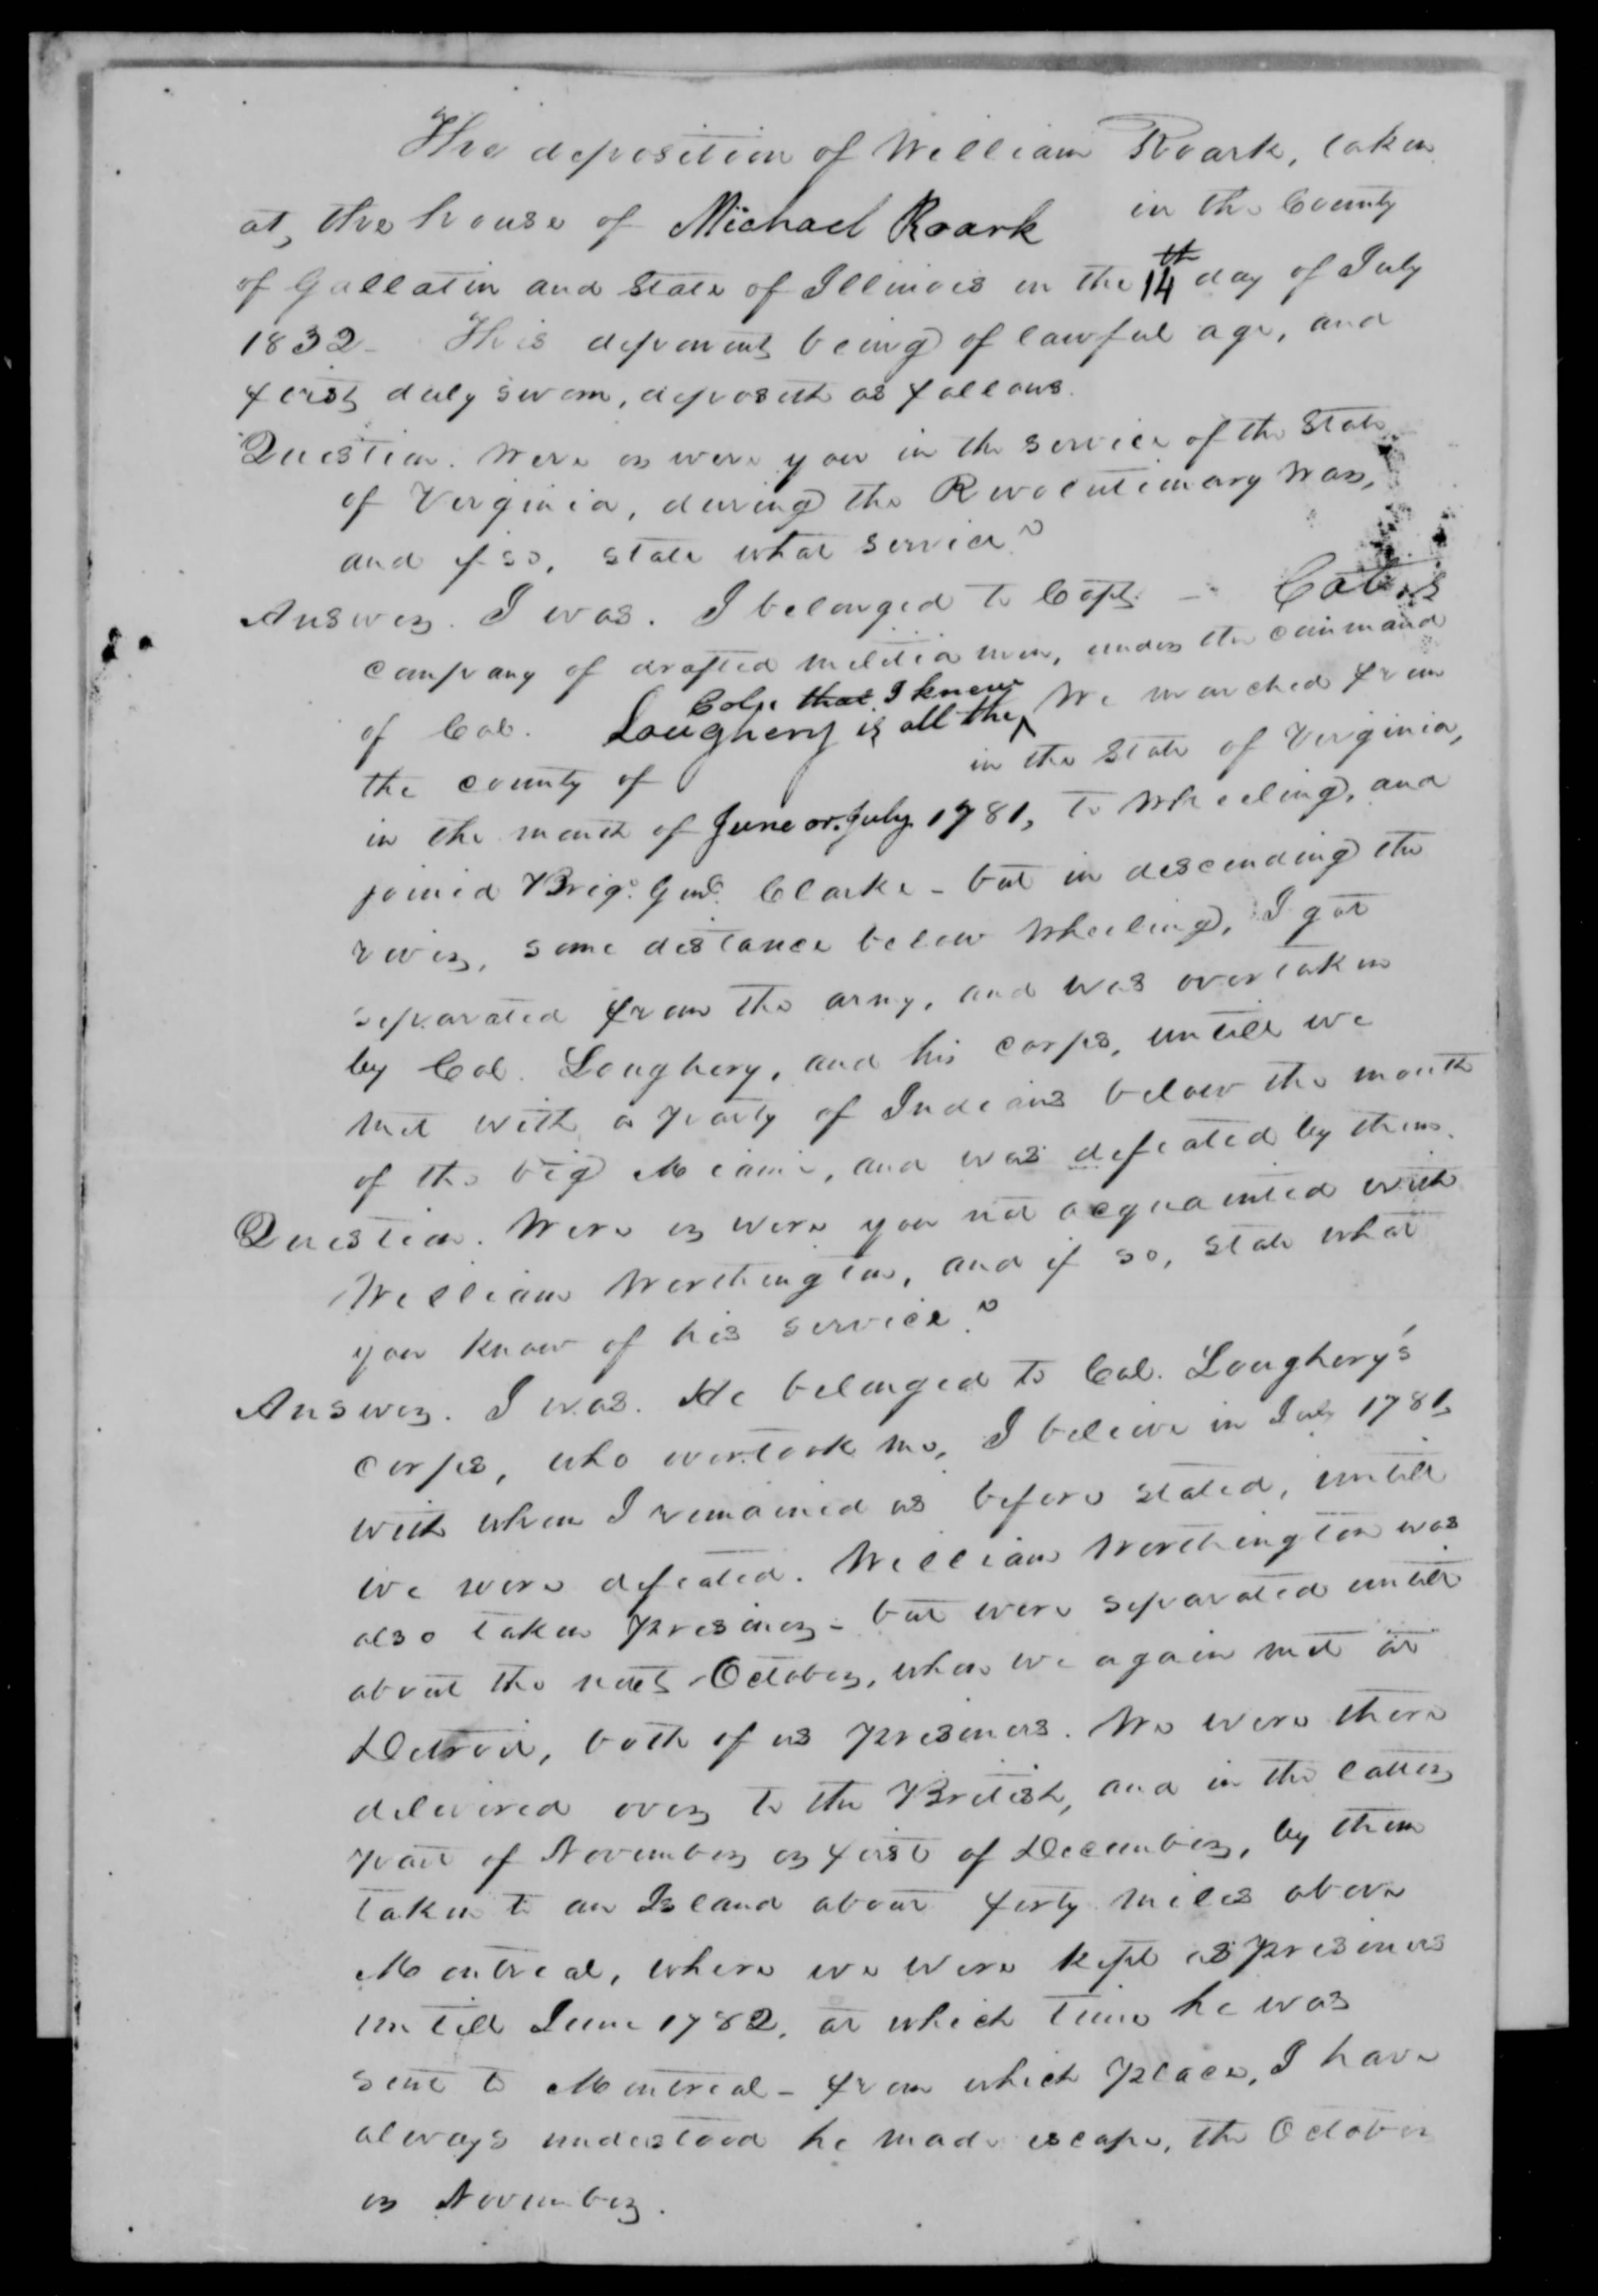 The deposition of William Roark, taken
at, the house of Michael Roark in the County
of Gallatin and State of Illinois on the 14th day of July
1832 - This deponent being of lawful age, and
first duly sworn, deposeth as follows.
Question. Were or were you in the service of the State
of Virginia, during the Revolutionary War,
and if so, state what service?
Answer. I was. I belonged to Capt. -
company of drafted militia men, under the command
Cols that I knew
of Col. Loughery is all the ^ We marched from
the county of in the State of Virginia,
in the month of June or July 1781, to Wheeling, and
joined Brigr. Genl. Clarke - but in descending the
river, some distance below Wheeling, I got
separated from the army, and was overtaken
by Col. Loughery, and his corps, untill we
met with a party of Indians below the mouth
of the big Miami, and was defeated by them.
Question. Were or were you not acquainted with
William Worthington, and if so, state what
you know of his service?
Answer. I was. He belonged to Col. Loughery's
corps, who overtook me, I believe in July 1781,
with whom I remained as before stated, untill
we were defeated. William Worthington was
also taken prisiner - but were separated untill
about the next October, when we again met at
Detroit, both of us prisiners. We were there
delivered over to the British, and in the latter
part of November or first of December, by them
taken to an Island about forty miles above
Montreal, where we were kept as prisiners
untill June 1782, at which time he was
sent to Montreal - from which place, I have
always understood he made escape, the October
or November.